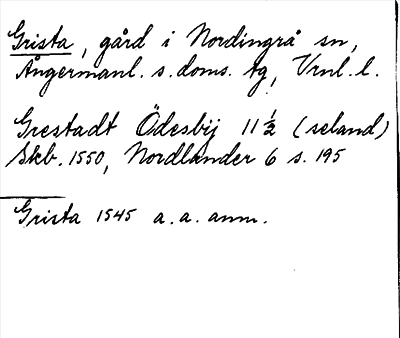 Grista, gård i Nordingrå sn,
Ångermanl. s. doms. tg, Vrnl. l.
Grestadt Ödesbij 11½ (seland)
Skb. 1550, Nordlander 6 s. 195
Grista 1545 a. a. anm.